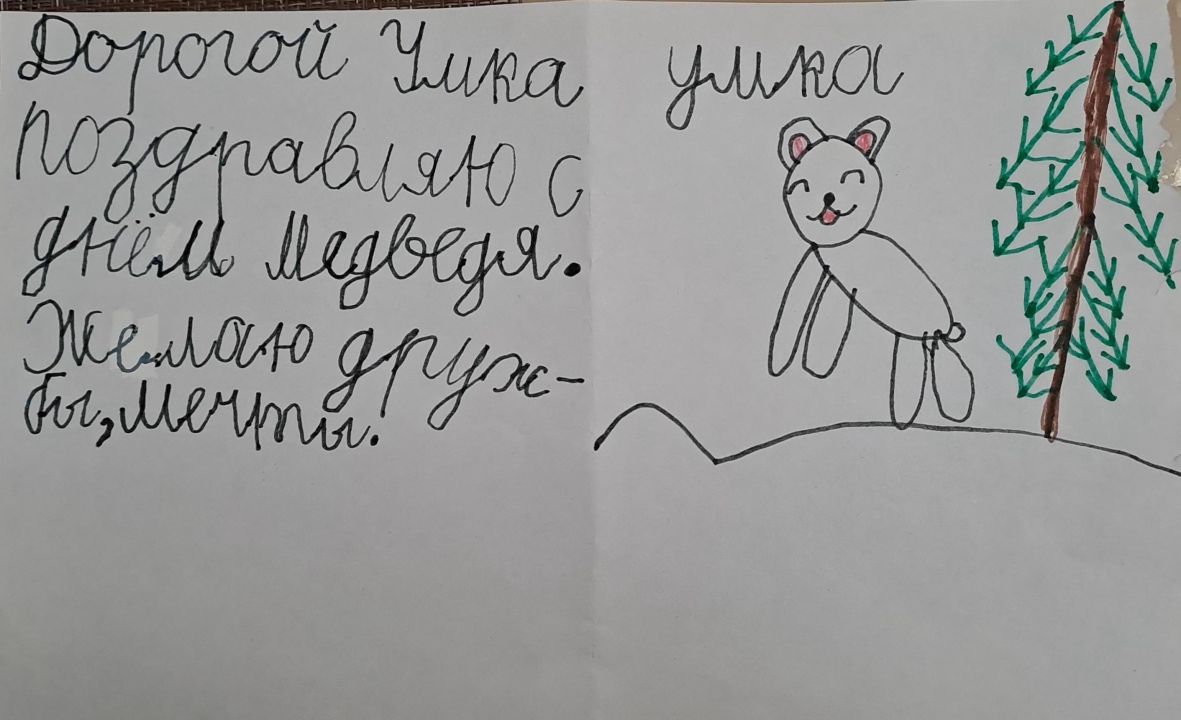 Дорогой Умка
поздравляю с
днём медведя.
Желаю друж-
бы, мечты.
умка